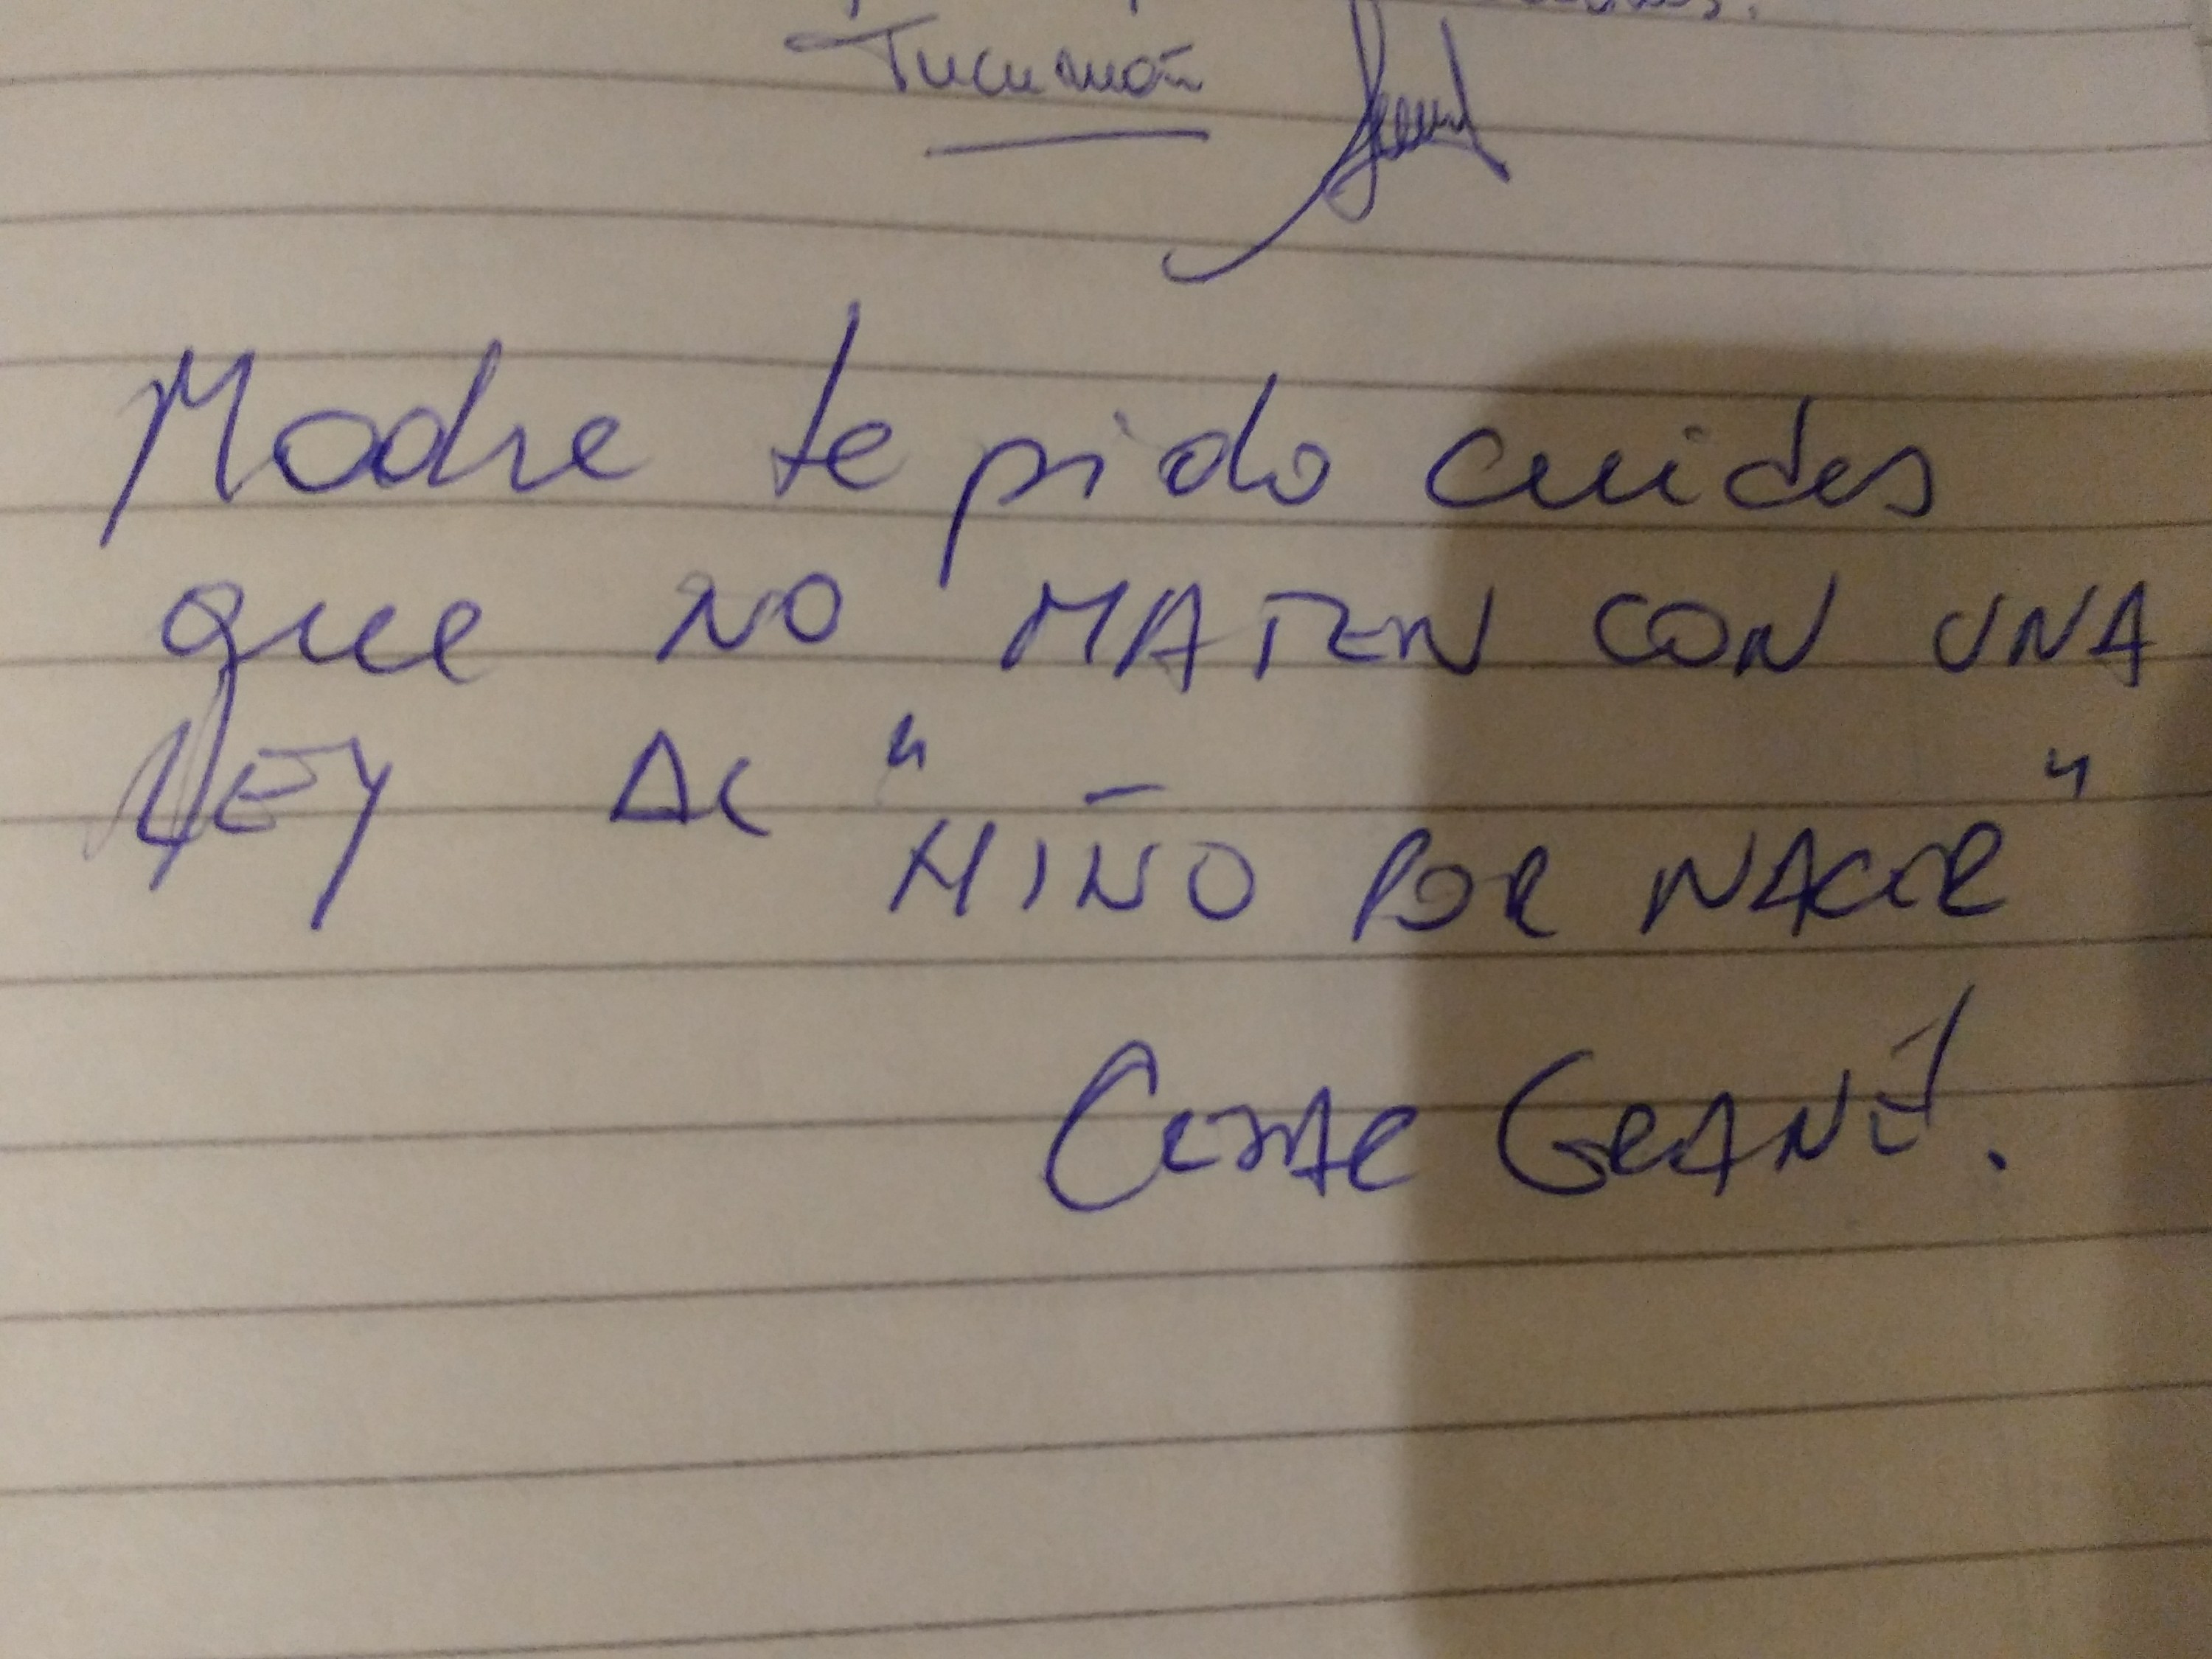 Tucumán
Madre te pido cuides
que NO MATEN CON UNA
LEY AL "NIÑO POR NACER"
CESAR GRANÉ.